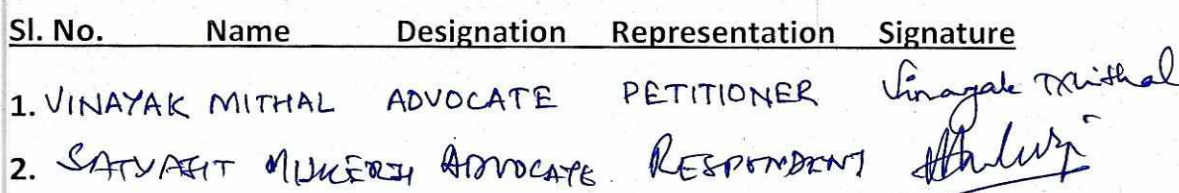 Sl. No. Name Designation Representation Signature
1. VINAYAK MITHAL ADVOCATE PETITIONER Vinayak Mithal
2. SATYAJIT MUKERJI ADVOCATE. RESPONDENT